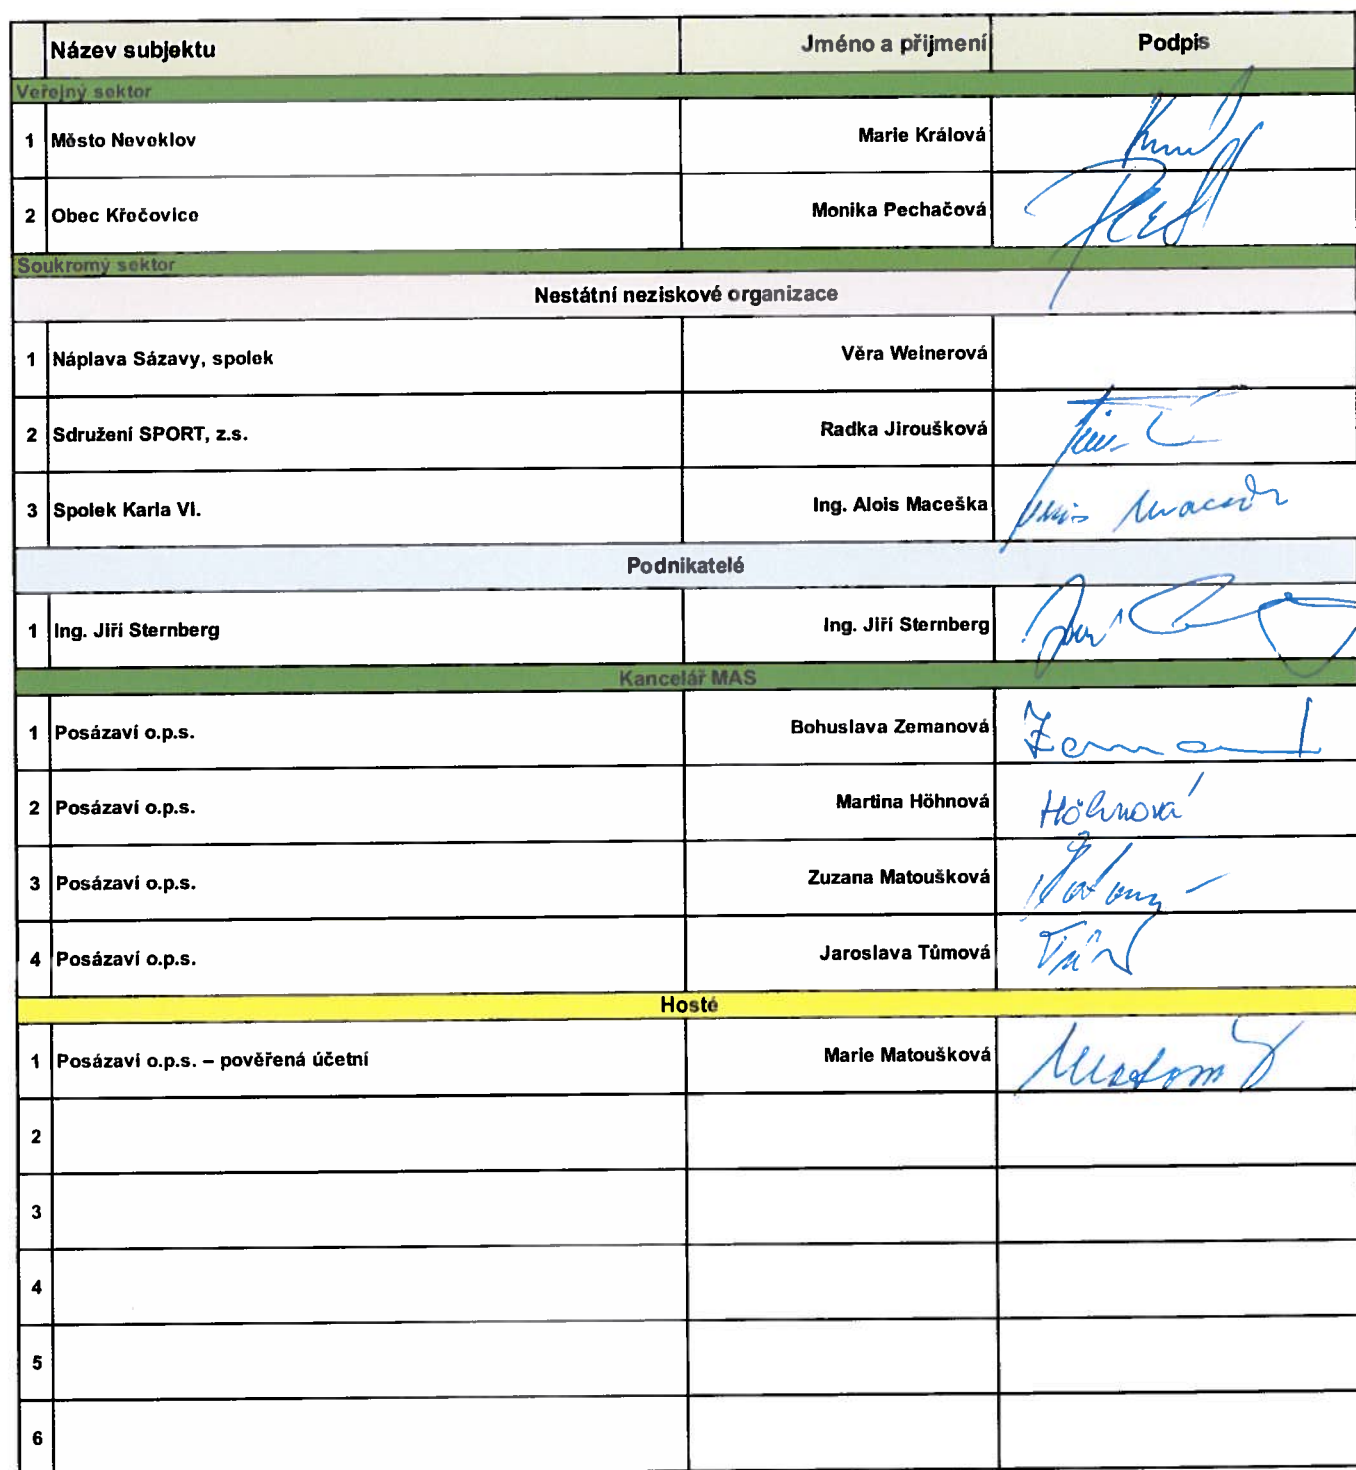 Název subjektu Jméno a přijmení Podpis
Veřejný sektor
1 Město Neveklov Marie Králová
2 Obec Křečovice Monika Pechačová
Soukromý sektor
Nestátní neziskové organizace
1 Náplava Sázavy, spolek Věra Weinerová
2 Sdružení SPORT, z.s. Radka Jiroušková
3 Spolek Karla VI. Ing. Alois Maceška
Podnikatelé
1 Ing. Jiří Sternberg Ing. Jiří Sternberg
Kancelář MAS
1 Posázaví o.p.s. Bohuslava Zemanová
2 Posázaví o.p.s. Martina Höhnová Höhnová
3 Posázaví o.p.s. Zuzana Matoušková
4 Posázaví o.p.s. Jaroslava Tůmová
Hosté
1 Posázaví o.p.s. – pověřená účetní Marie Matoušková
2
3
4
5
6